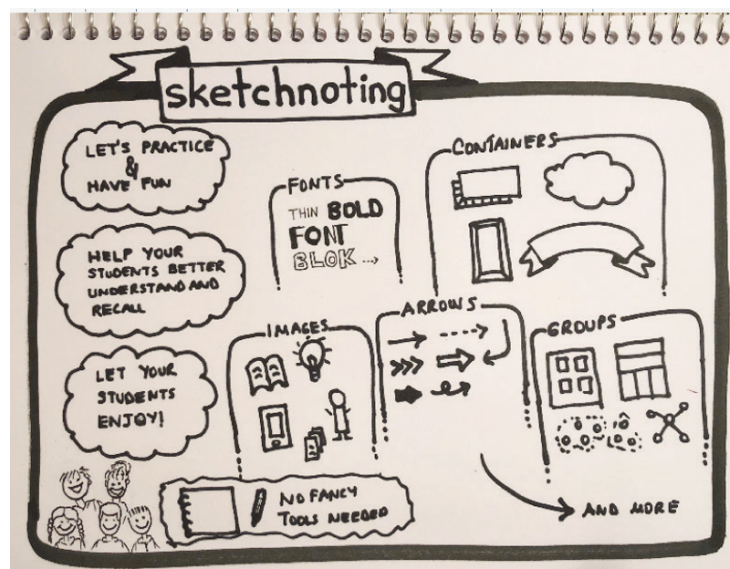 sketchnoting
LET'S PRACTICE
&
HAVE FUN
HELP YOUR
STUDENTS BETTER
UNDERSTAND AND
RECALL
LET YOUR
STUDENTS
ENJOY!
FONTS
THIN BOLD
FONT
BLOK ...
CONTAINERS
IMAGES
ARROWS
GROUPS
NO FANCY
TOOLS NEEDED
AND MORE